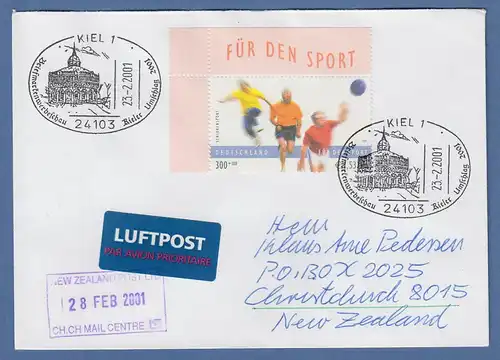 KIEL 1
Briefmarkenwerbeschau Kieler Umschlag 2001
23-2.2001
24103
FÜR DEN SPORT
DEUTSCHLAND FÜR DEN SPORT
300
KIEL 1
Briefmarkenwerbeschau Kieler Umschlag 2001
23-2.2001
24103
LUFTPOST
PAR AVION PRIORITAIRE
NEW ZEALAND POST LTD
28 FEB 2001
CH.CH MAIL CENTRE
Herrn
Klaus Arne Pedersen
P.O.BOX 2025
Christchurch 8015
New Zealand